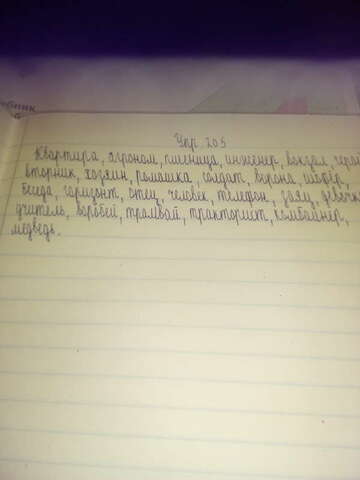 ебник
Упр. 203
Квартира, агроном, пшеница, инженер, вокзал, герой
вторник, хозяин, ромашка, солдат, ворона, шофёр,
беседа, горизонт, отец, человек, телефон, заяц, девочка
учитель, воробей, трамвай, тракторист, комбайнер,
медведь.